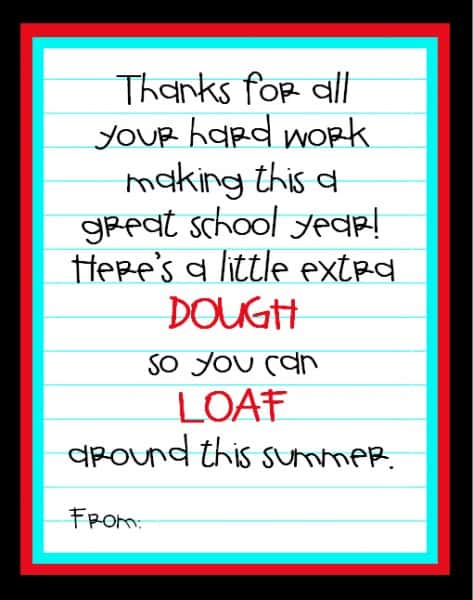 Thanks for all
your hard work
making this a
great school year!
Here's a little extra
DOUGH
so you can
LOAF
around this summer.
From: